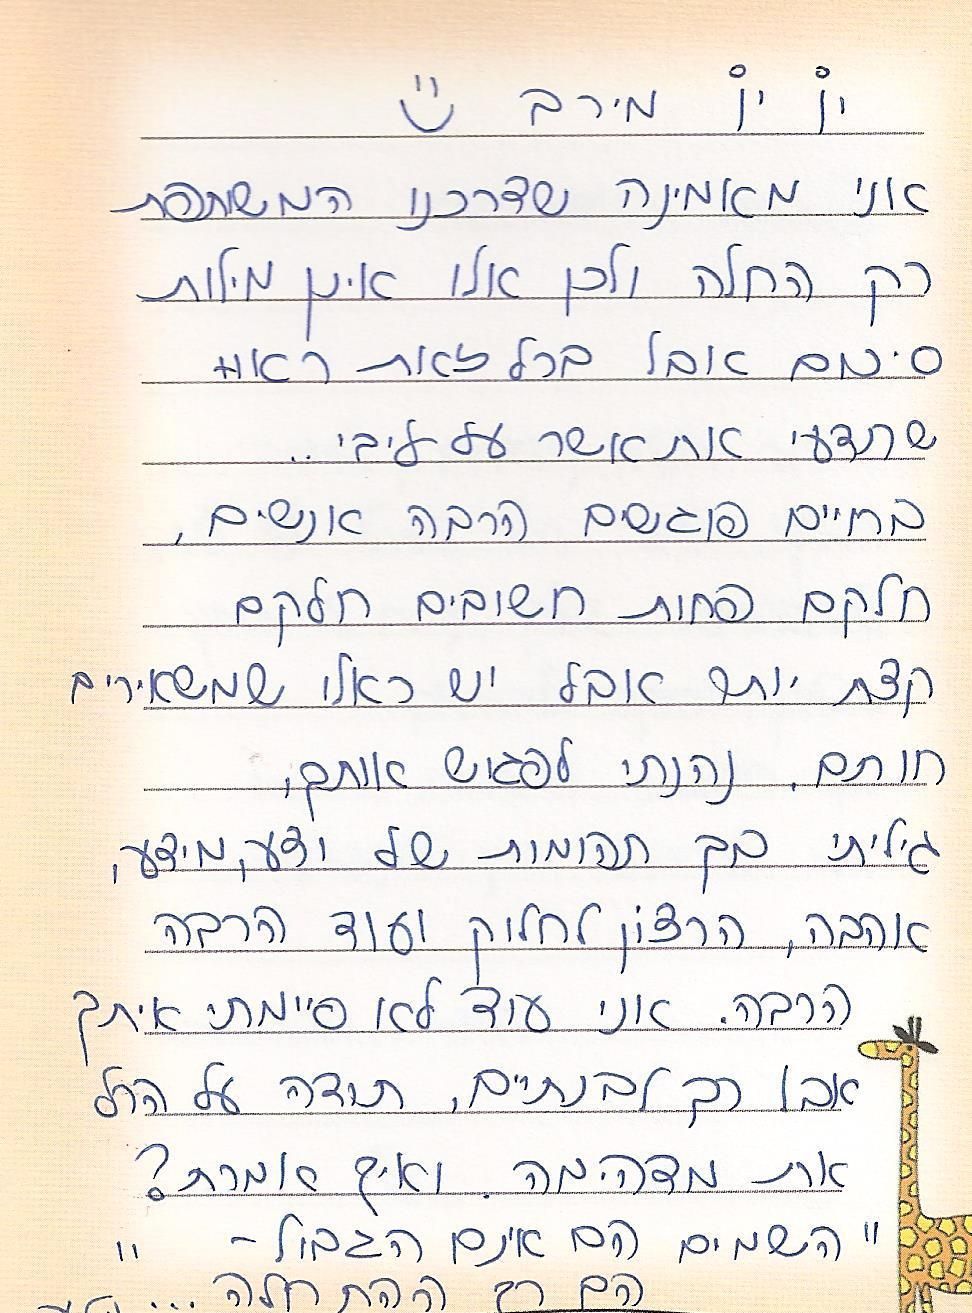 יו יו מירב
אני מאמינה שדרכנו המשותפת
רק החלה ולכן אלו אינן מילות
סיכום אבל בכל זאת
שתדעי את אשר על ליבי..
בחיים פוגשים הרבה אנשים,
חלקם פחות חשובים חלקם
קצת יותר אבל יש כאלו שמשאירים
חותם. נהנתי לפגוש אותך,
גיליתי בך תהומות של ודע, מידע,
אהבה, הרצון לחלוק ועוד הרבה
הרבה. אני עוד לא סיימתי איתך
אבל רק לבנתיים, תודה על הכל
את מדהימה. ואיך אומרת?
"השמים הם אינם הגבול -
הם רק ההתחלה... "